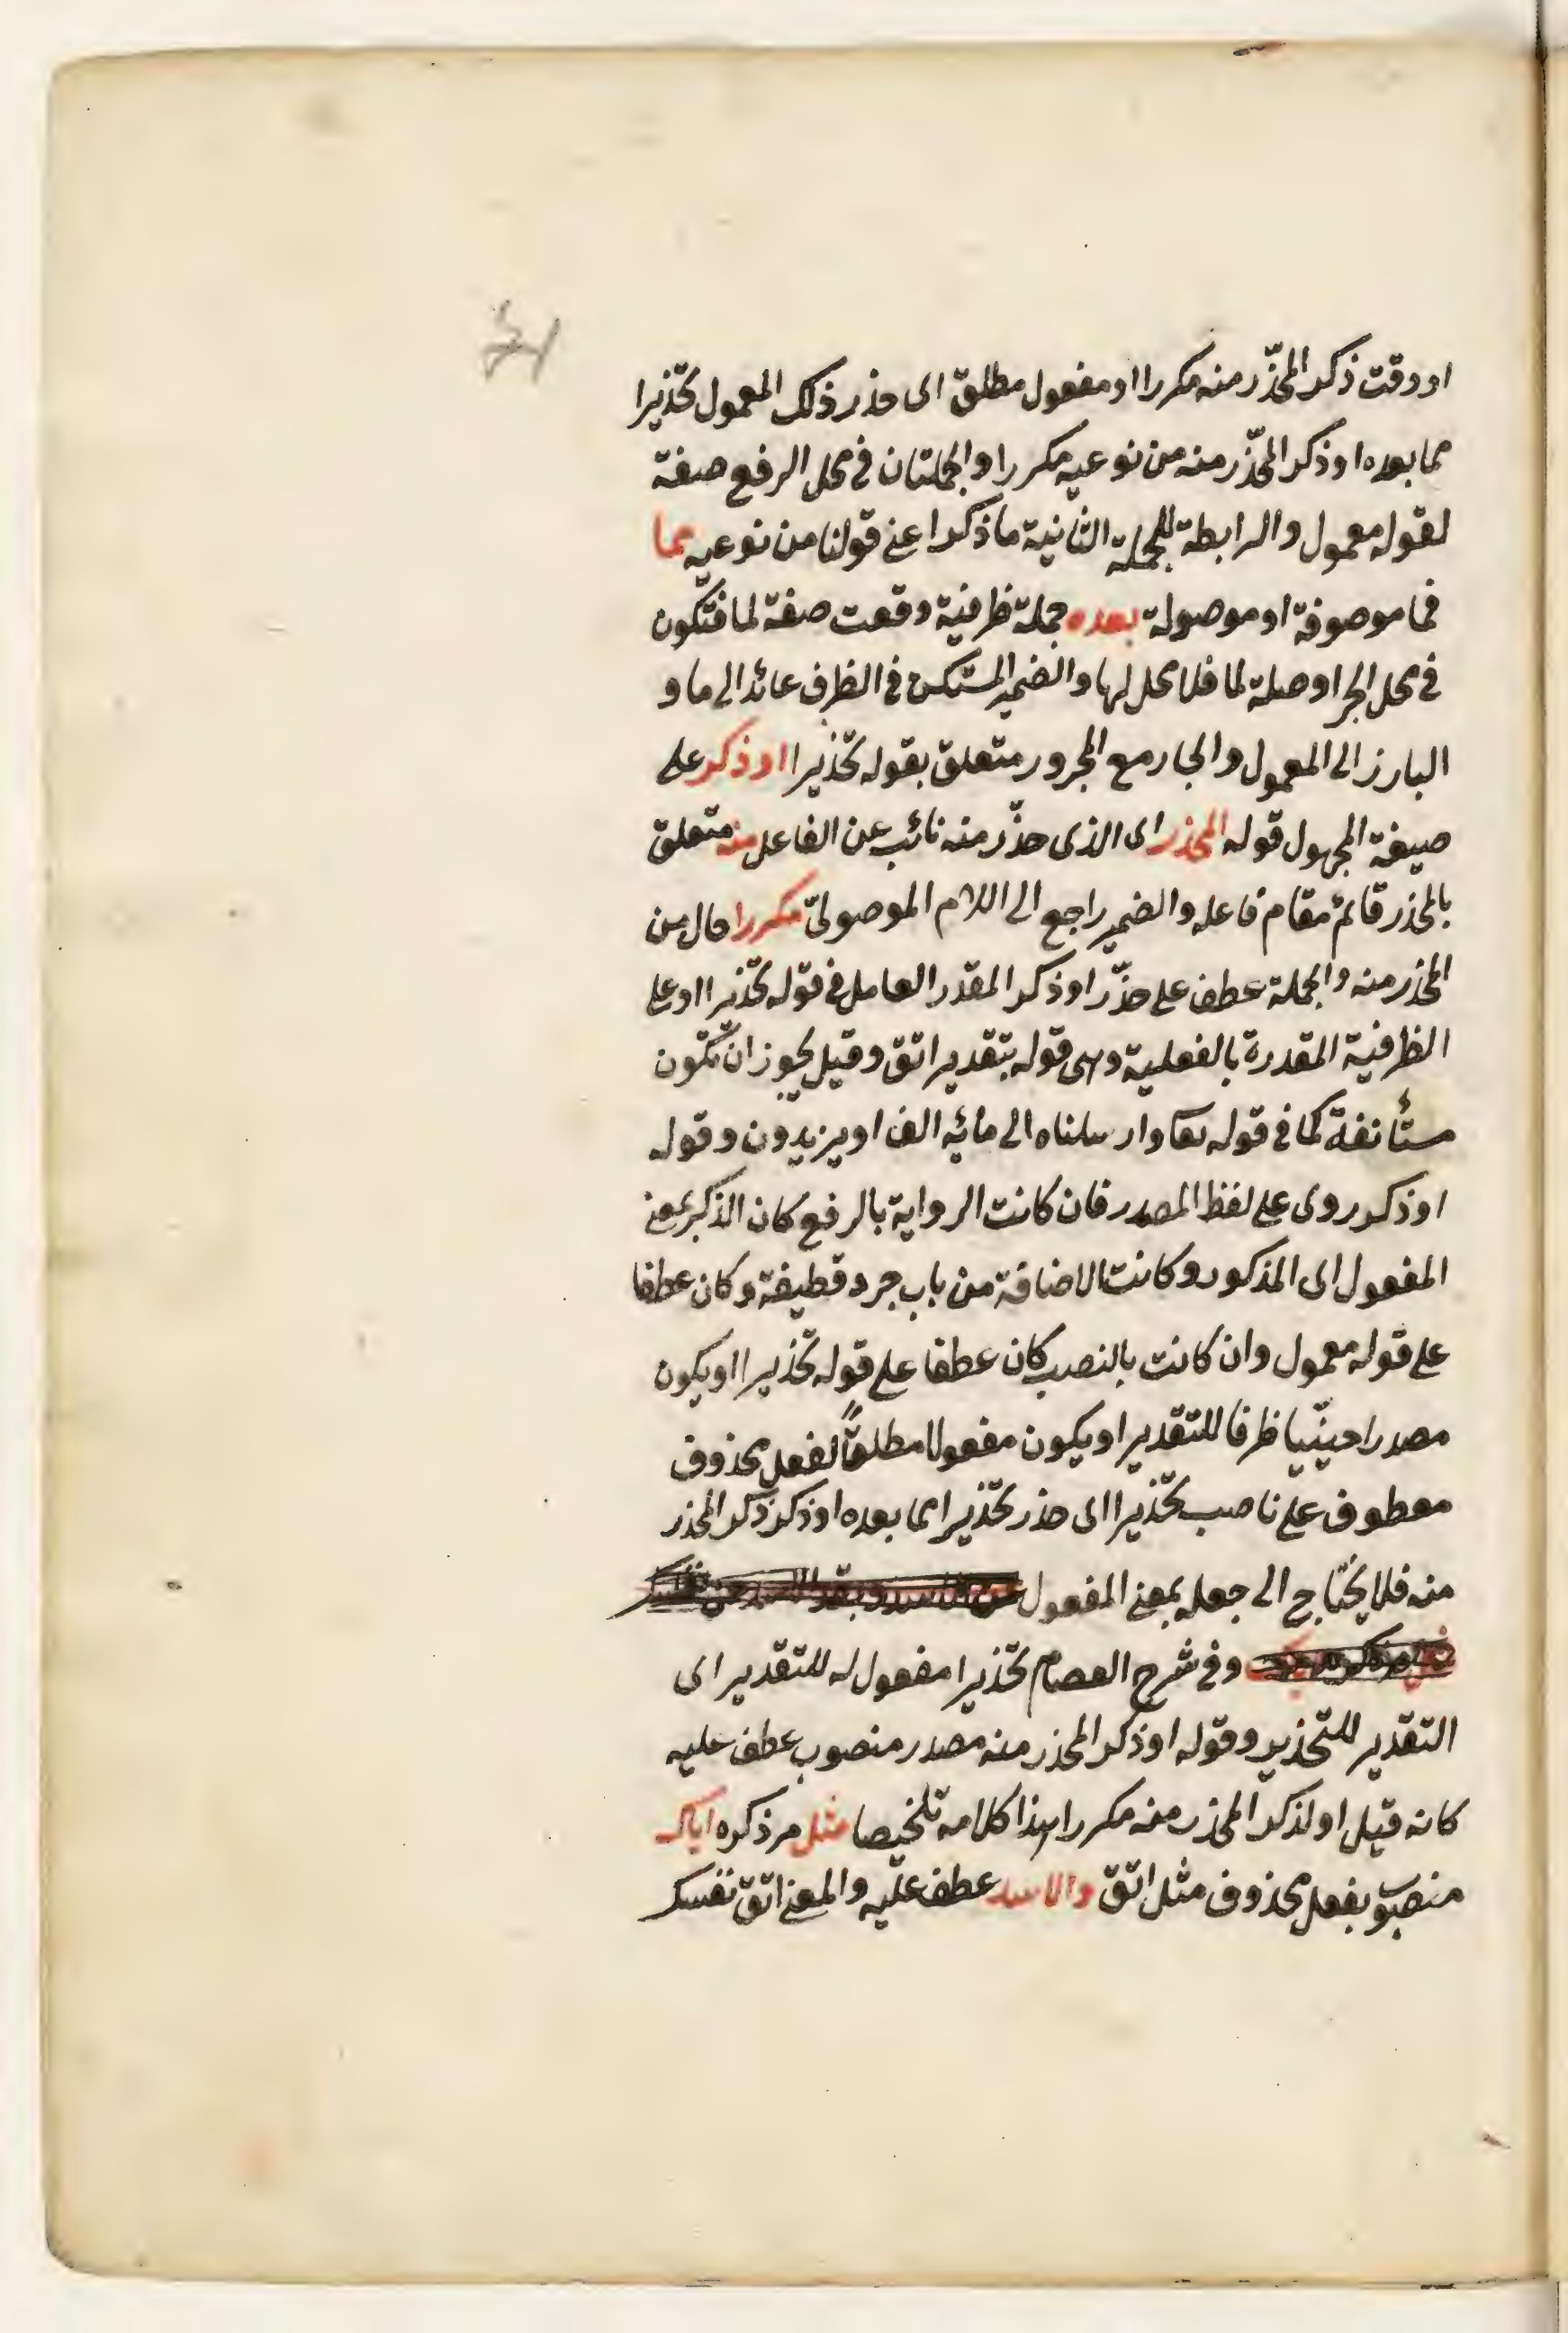 او وقت ذكر المحذّر منه مكررا او مفعول مطلق اى حذر ذلك المعمول تحذيرا
مما بعده او ذكر المحذّر منه من نوعيه مكررا والجملتان فى محل الرفع صفة
لقوله معمول والرابطة للجملة الثانية ما ذكرا عنى قولنا من نوعيه مما
فما موصوفة او موصولة بعده جملة ظرفية وقعت صفة لما فتكون
فى محل الجر او صلة لما فلا محل لها والضمير المستكن فى الظرف عائد الى ما و
البارز الى المعمول والجار مع المجرور متعلق بقوله تحذيرا او ذكر على
صيغة المجهول قوله المحذر اى الذى حذّر منه نائب عن الفاعل منه متعلق
بالمحذر قائم مقام فاعله والضمير راجع الى اللام الموصولىّ مكررا حال من
المحذر منه والجملة عطف على حذّر او ذكر المقدر العامل فى قوله تحذيرا او على
الظرفية المقدرة بالفعلية وهى قوله بتقدير اتق وقيل يجوز ان تكون
مستأنفة كما فى قوله تعا وارسلناه الى مائه الف او يزيدون وقوله
او ذكر روى على لفظ المصدر فان كانت الرواية بالرفع كان الذكر بمعنى
المفعول اى المذكور وكانت الاضافة من باب جرد قطيفة وكان عطفا
على قوله معمول وان كانت بالنصب كان عطفا على قوله تحذيرا او يكون
مصدرا حينيّا ظرفا للتقدير او يكون مفعولا مطلقاً لفعل محذوف
معطوف على ناصب تحذيرا اى حذر تحذيرا مما بعده او ذكر ذكر المحذر
منه فلا يحتاج الى جعله بمعنى المفعول
وفى شرح العصام تحذيرا مفعول له للتقدير اى
التقدير للتحذير وقوله او ذكر المحذر منه مصدر منصوب عطف عليه
كانه قيل او لذكر المحذر منه مكررا هذا كلامه تلخيصا مثل مر ذكره اياك
منصوب بفعل محذوف مثل اتق والاسد عطف عليه والمعنى اتق نفسك